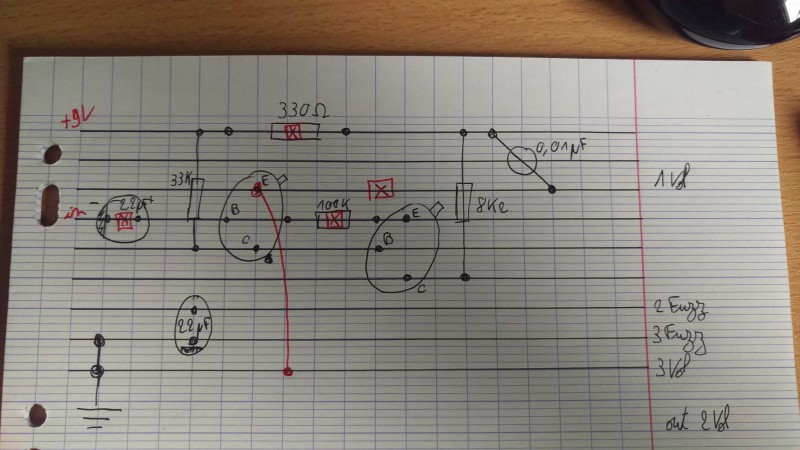 330Ω
+9V
0,01µF
33K
E
1 Vol
- 22µF+
100K
E
in
B
8K2
C
B
C
22µF
2 Fuzz
3 Fuzz
3 Vol
out 2 Vol